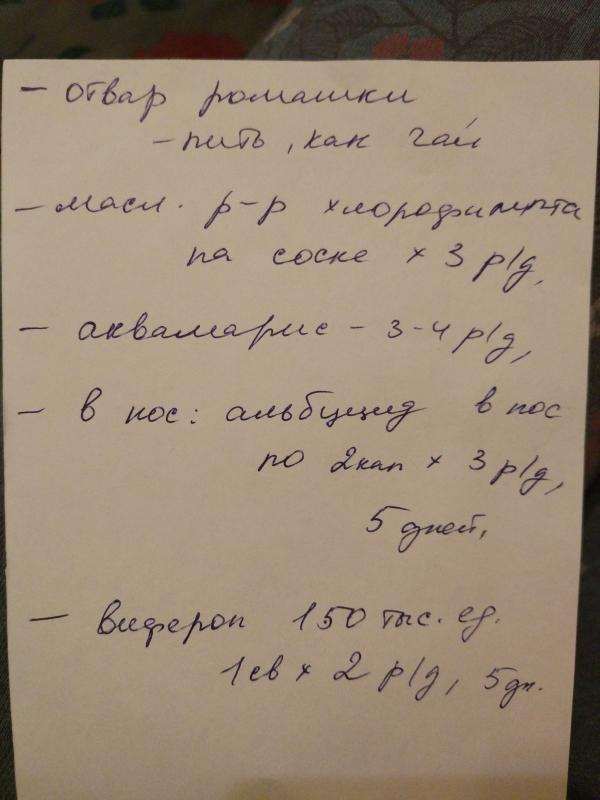 - отвар ромашки
- пить, как чай
- масл. р-р хлорофиллипта
на соске × 3 р/д,
- аквамарис - 3-4 р/д,
- в нос: альбуцид в нос
по 2 кап × 3 р/д,
5 дней,
- виферон 150 тыс. ед.
1 св × 2 р/д, 5 дн.